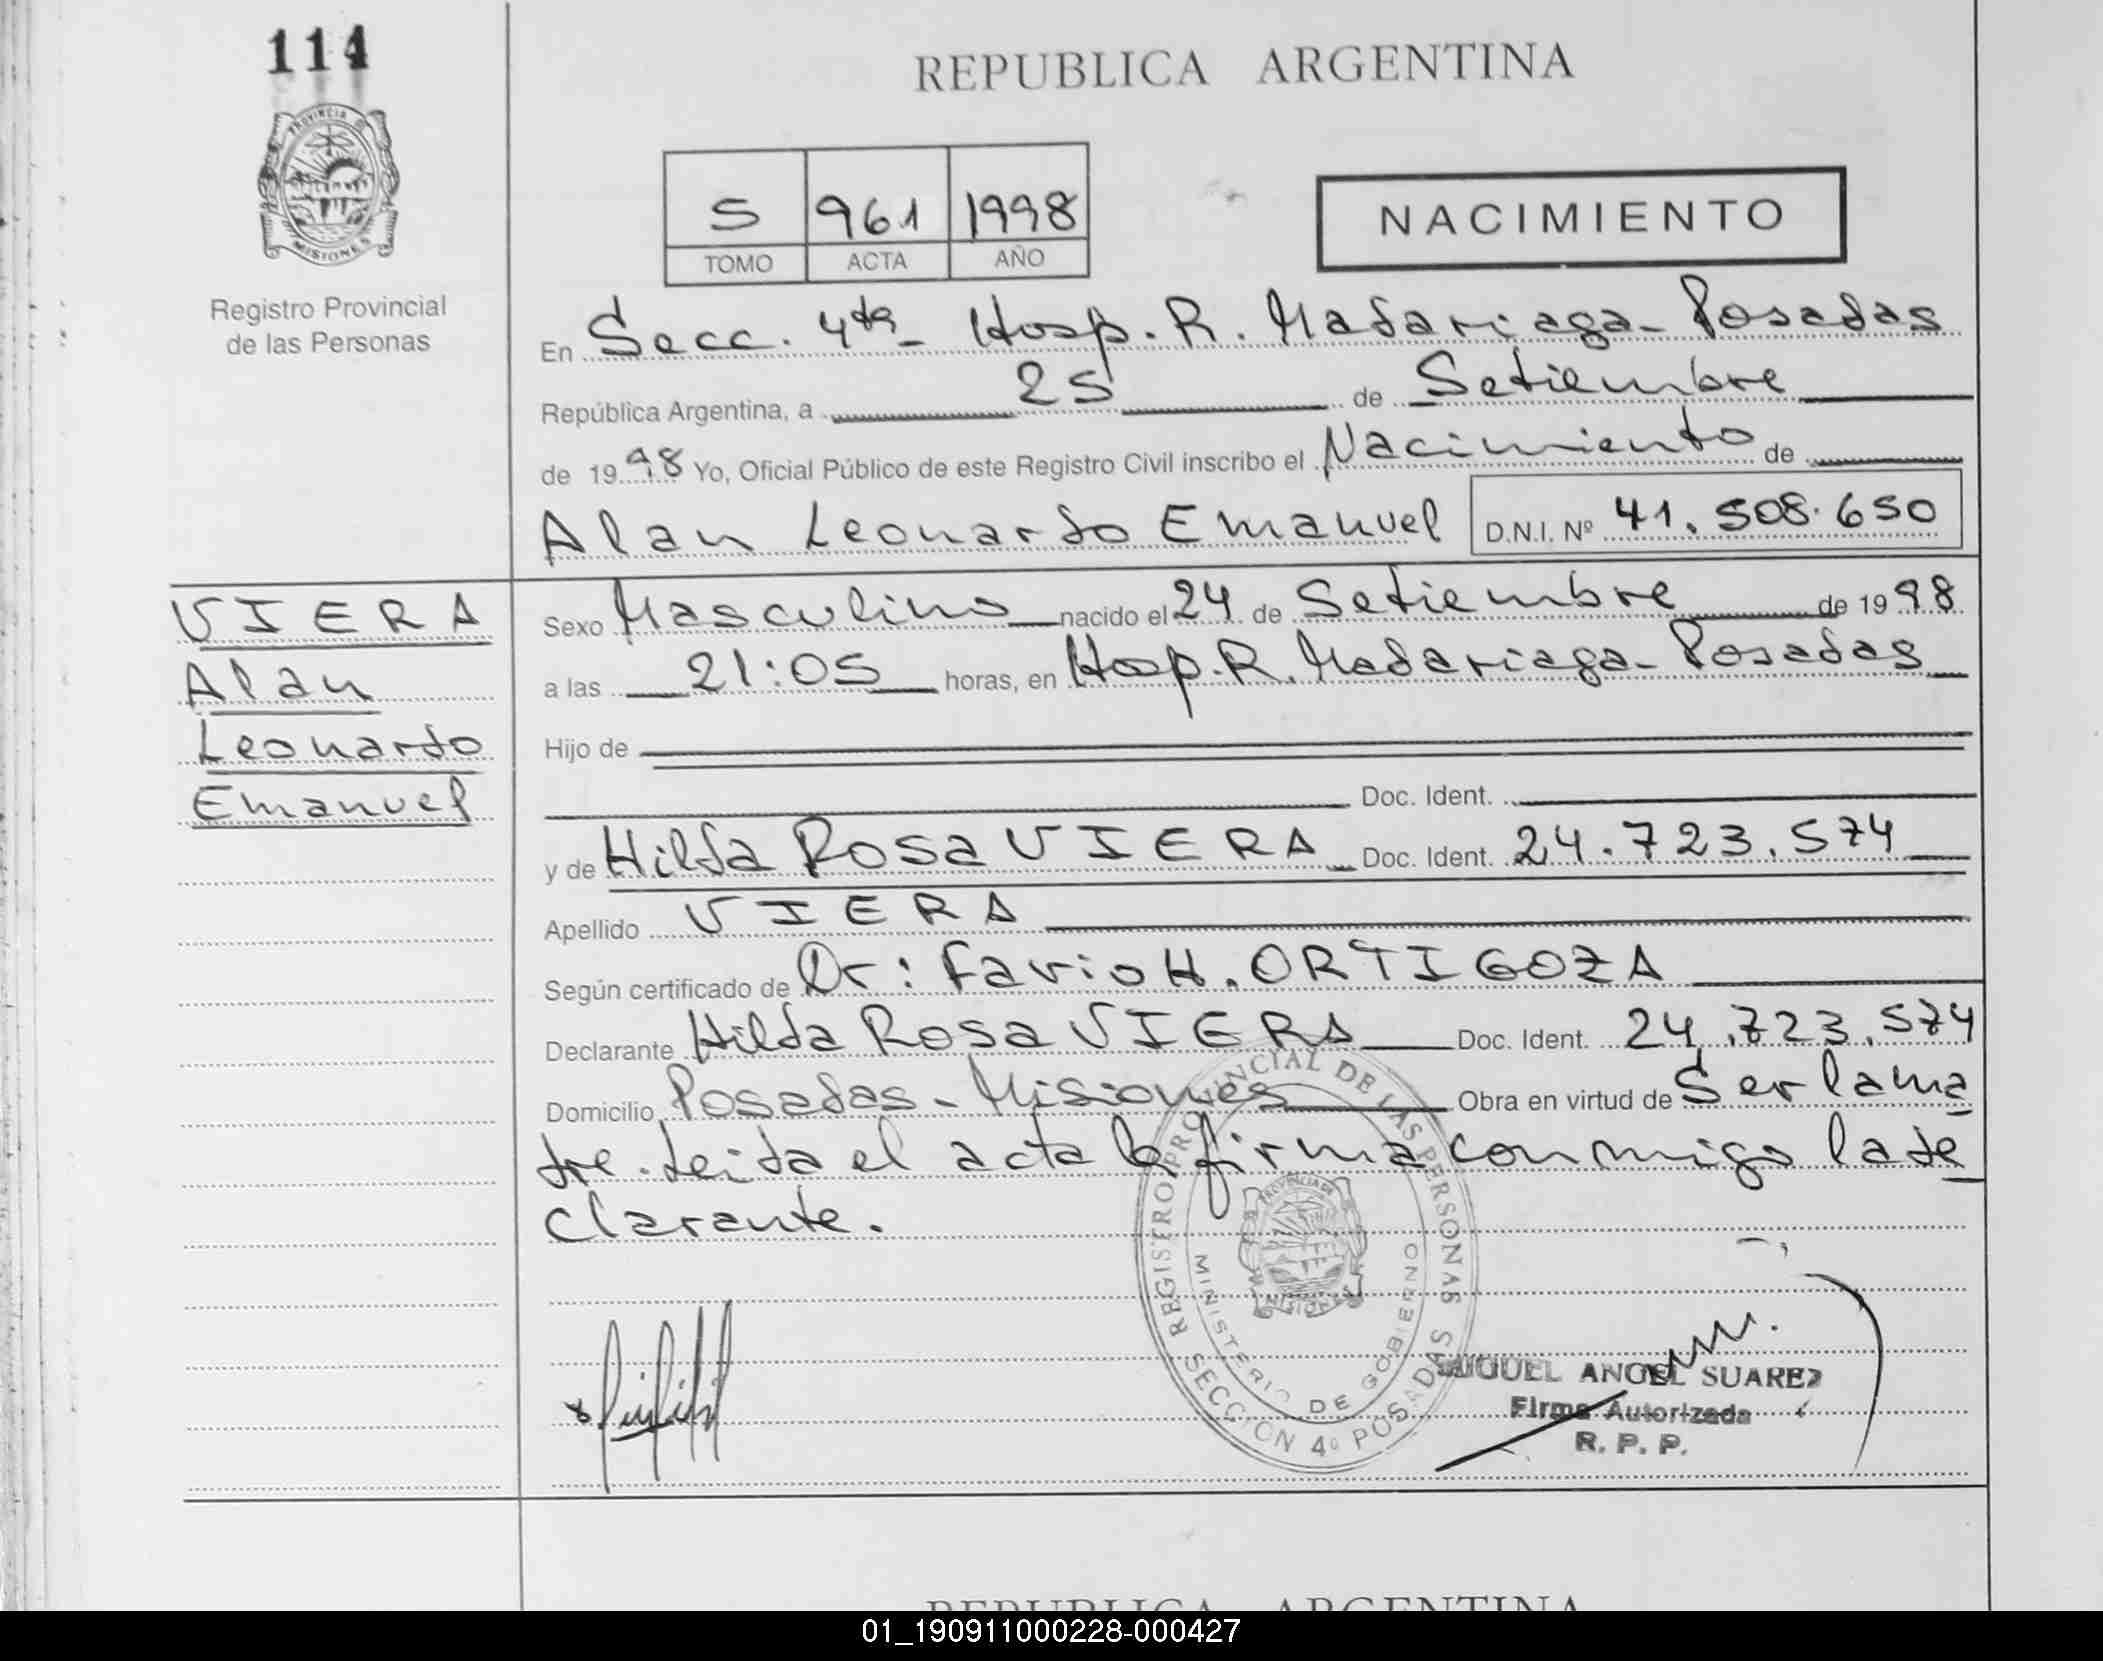 114
REPUBLICA ARGENTINA
PROVINCIA DE
MISIONES
Registro Provincial
de las Personas
5 961 1998
TOMO ACTA AÑO
NACIMIENTO
En Secc. 4ta - Hosp. R. Madariaga - Posadas
República Argentina, a 25 de Setiembre
de 1998 Yo, Oficial Público de este Registro Civil inscribo el Nacimiento de
Alan Leonardo Emanuel D.N.I. Nº 41.508.650
VIERA
Alan
Leonardo
Emanuel
Sexo Masculino nacido el 24 de Setiembre de 1998
a las 21:05 horas, en Hosp. R. Madariaga - Posadas
Hijo de
Doc. Ident.
y de Hilda Rosa VIERA Doc. Ident. 24.723.574
Apellido VIERA
Según certificado de Dr: Favio H. ORTIGOZA
Declarante Hilda Rosa VIERA Doc. Ident. 24.723.574
Domicilio Posadas - Misiones Obra en virtud de Ser la ma
dre. Leida el acta la firma conmigo la de
clarante.
REGISTRO PROVINCIAL DE LAS PERSONAS
SECCION 4º POSADAS
MINISTERIO DE GOBIERNO
MIGUEL ANGEL SUAREZ
Firma Autorizada
R. P. P.
REPUBLICA ARGENTINA
01_190911000228-000427